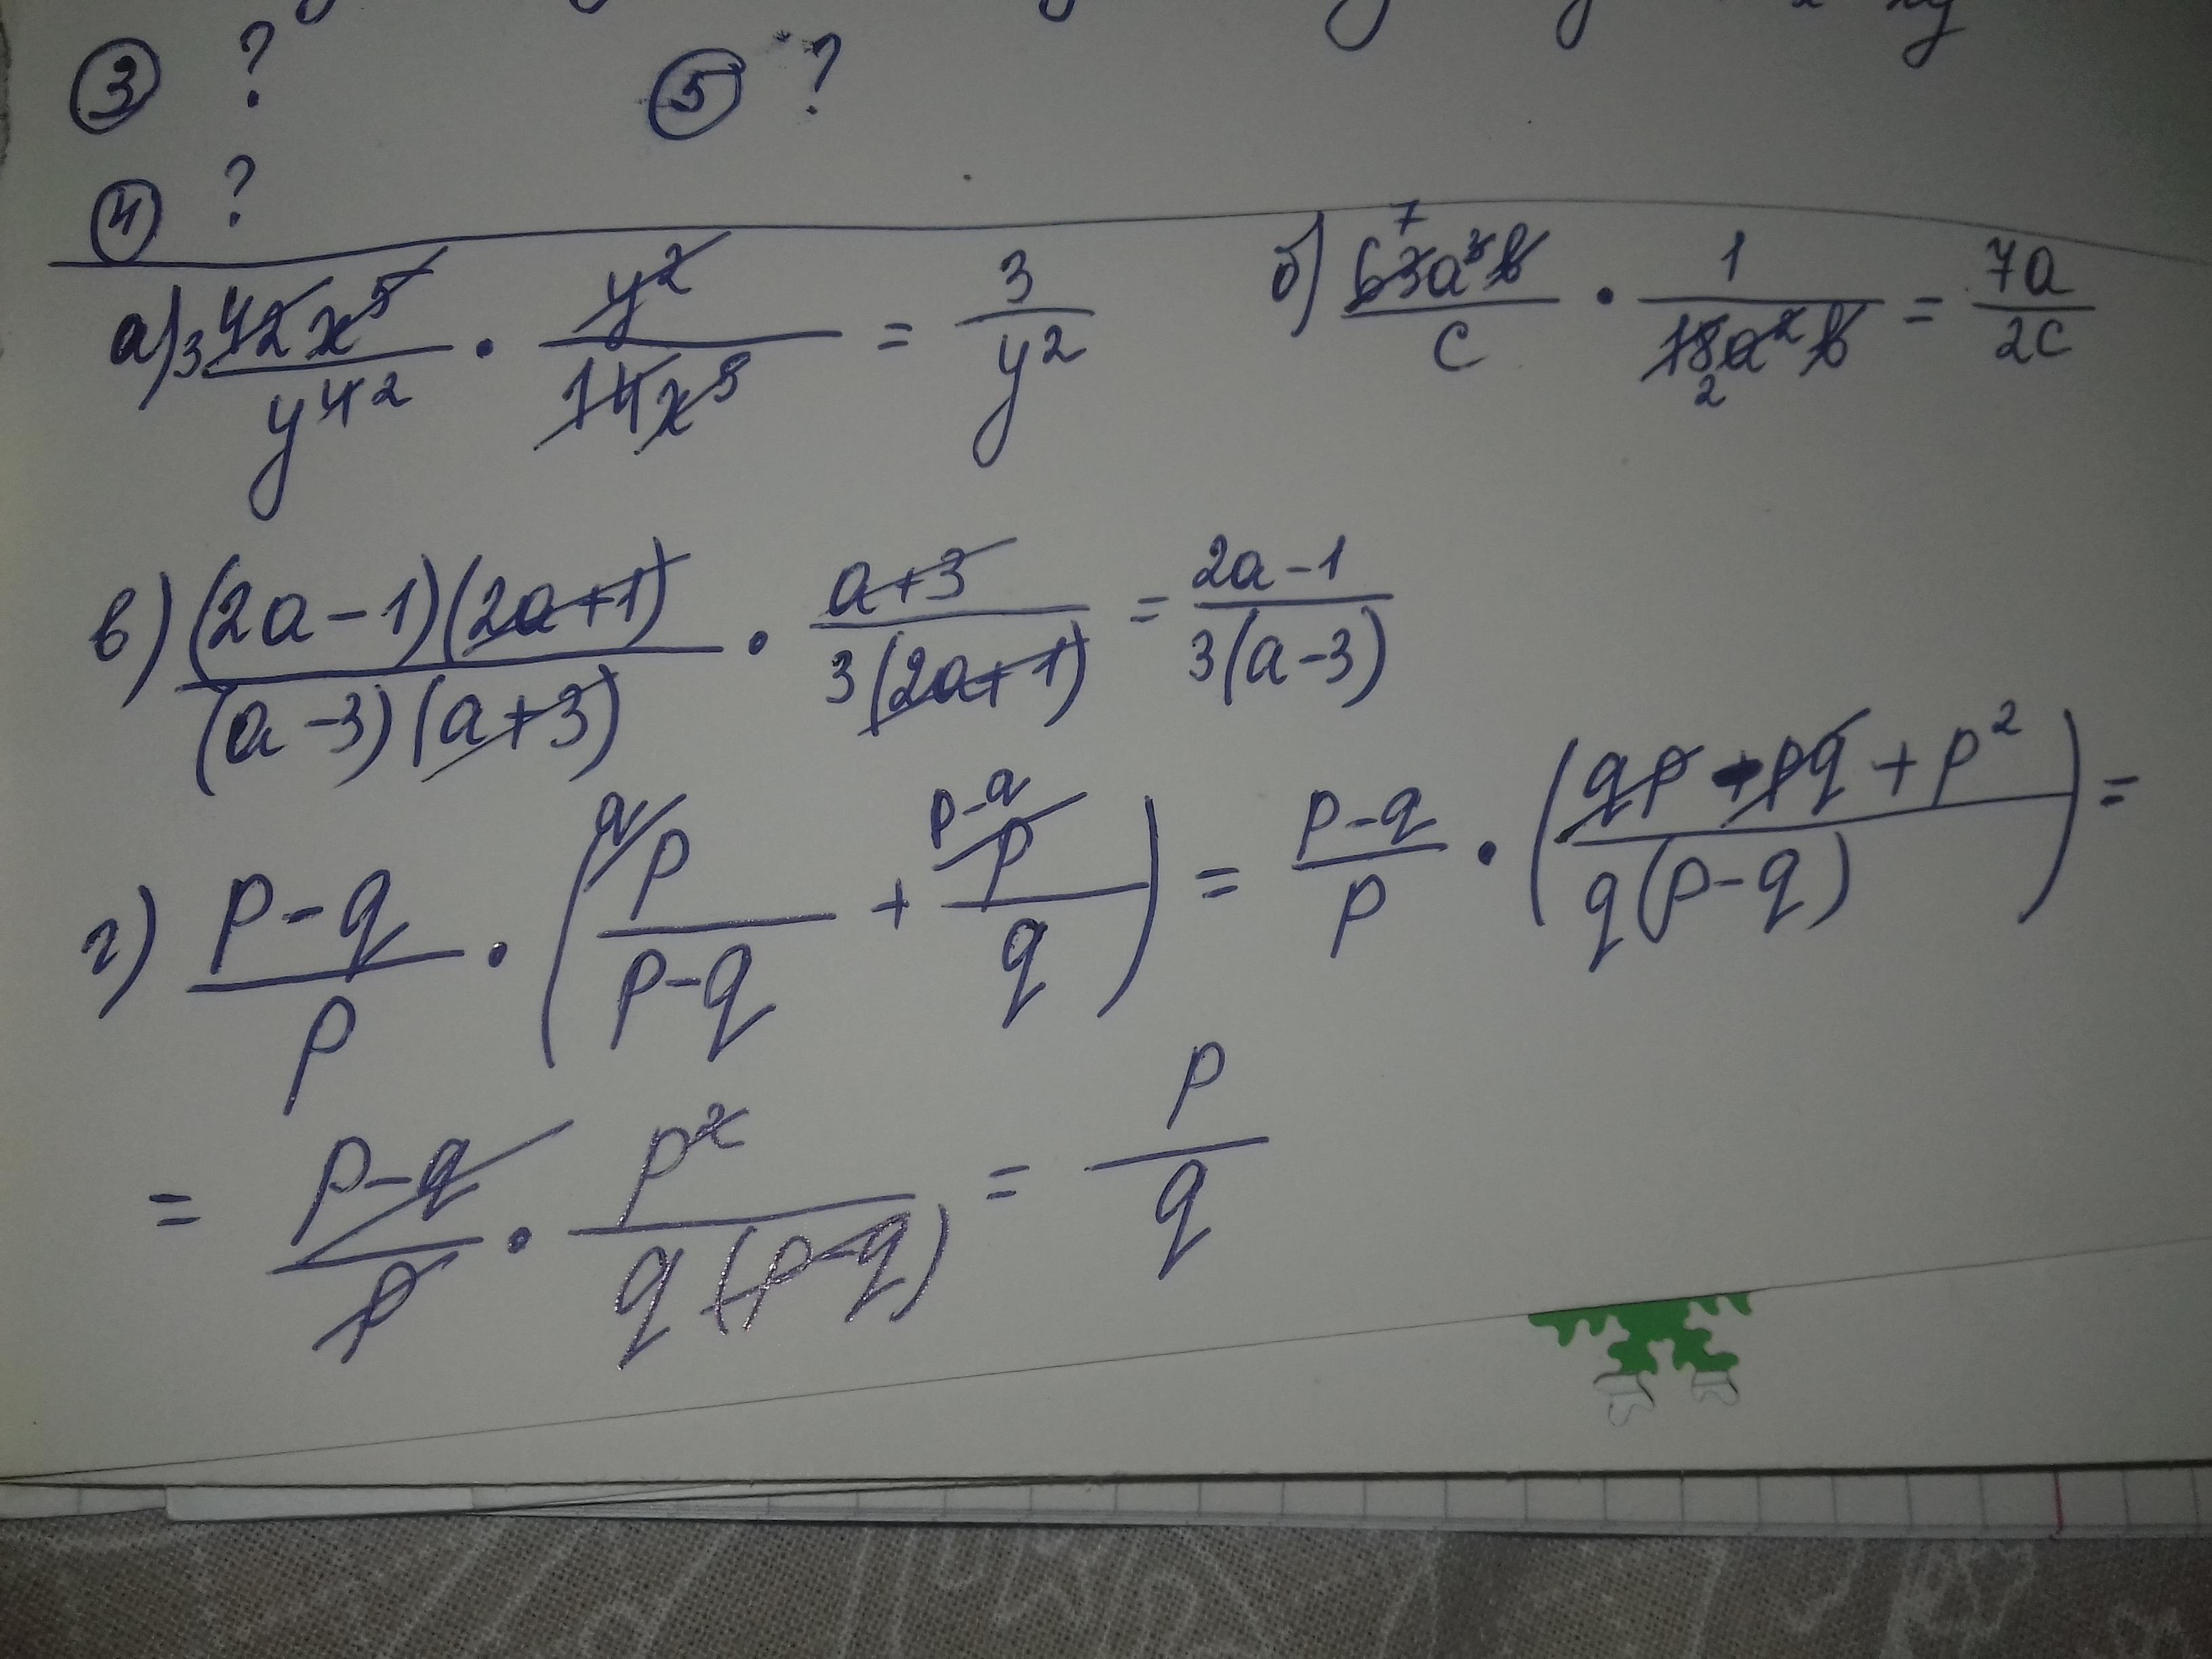 ③ ? ⑤ ?
④ ?
а) 3 42x⁵/y⁴ ² · y²/14x⁵ = 3/y² б) 7 63a³b/c · 1/18a²b 2 = 7a/2c
в) (2a-1)(2a+1)/(a-3)(a+3) · a+3/3(2a+1) = 2a-1/3(a-3)
г) p-q/p · (q/ p/p-q + p-q/ p/q) = p-q/p · (qp - pq + p²/q(p-q)) =
= p-q/p · p²/q(p-q) = p/q